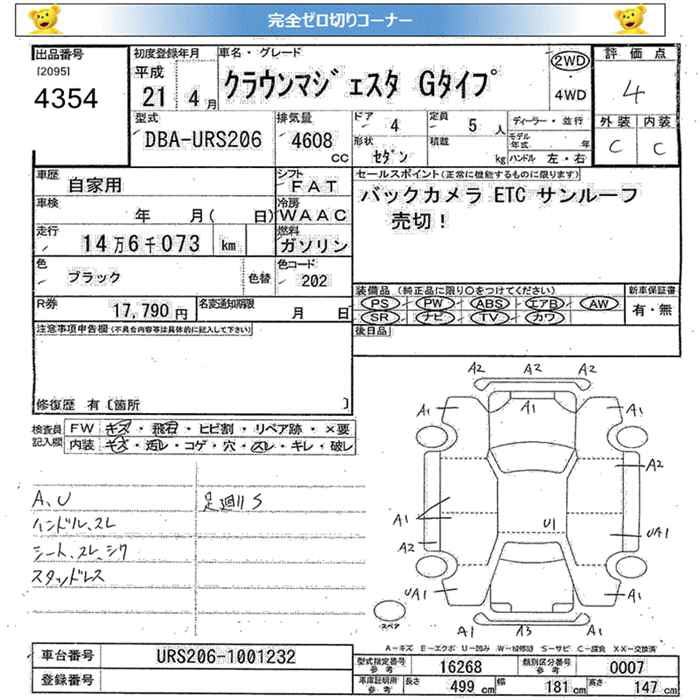 完全ゼロ切りコーナー
出品番号
[2095]
4354
初度登録年月
平成
21 4月
車名・グレード
クラウンマジェスタ Gタイプ
2WD
・
4WD
評価点
4
外装 内装
C C
型式
DBA-URS206
排気量
4608
CC
ドア
4
定員
5 人
形状
セダン
積載
kg
ディーラー・並行
モデル年式 年
ハンドル 左・右
車歴
自家用
シフト
FAT
車検
年 月( 日)
冷房
WAAC
走行
14万6千073 km
燃料
ガソリン
色
ブラック
色替
色コード
202
R券
17,790円
名変通知期限
月 日
セールスポイント(正常に機能するものに限ります)
バックカメラ ETC サンルーフ
売切！
装備品(純正品に限り○をつけてください)
新車保証書
PS PW ABS エアB AW
SR ナビ TV カワ
有・無
後日品
注意事項申告欄(不具合内容等は具体的に記入して下さい)
修復歴 有〔箇所 〕
検査員記入欄
FW キズ・飛石・ヒビ割・リペア跡・×要
内装 キズ・汚レ・コゲ・穴・スレ・キレ・破レ
A、U 足廻りS
ハンドル、スレ
シート、スレ、シワ
スタッドレス
A2 A2 A2
A1 A1 A1
A2
A1 U1 UA1
A2
UA1 UA1
A1 A3 A1
スペア
A-キズ E-エクボ U-凹み W-補修跡 S-サビ C-腐食 XX-交換済
車台番号 URS206-1001232
登録番号
型式指定番号 参考 16268
類別区分番号 参考 0007
車庫証明用 参考 長さ 499cm 幅 181cm 高さ 147cm